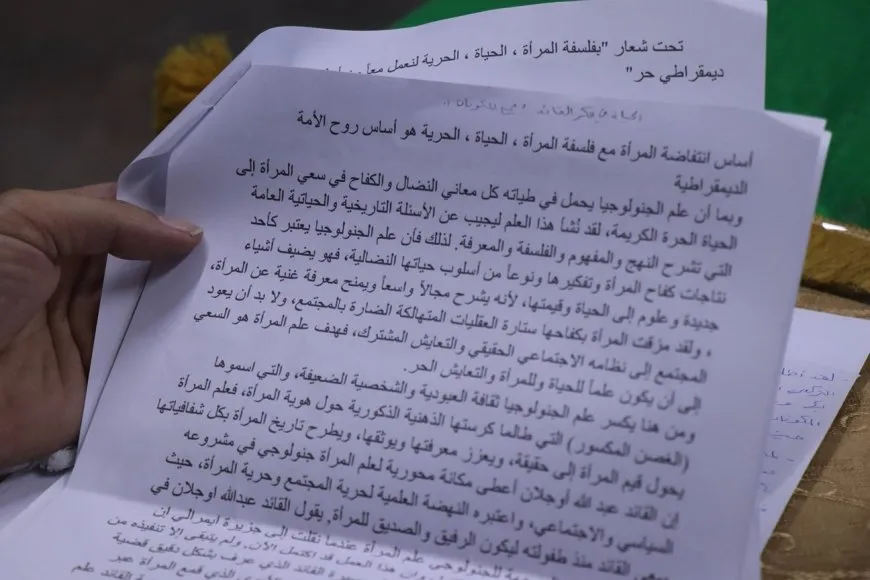 تحت شعار "بفلسفة المرأة ، الحياة ، الحرية لنعمل معاً
ديمقراطي حر"
أساس انتفاضة المرأة مع فلسفة المرأة ، الحياة ، الحرية هو أساس روح الأمة
الديمقراطية
وبما أن علم الجنولوجيا يحمل في طياته كل معاني النضال والكفاح في سعي المرأة إلى
الحياة الحرة الكريمة، لقد نُشأ هذا العلم ليجيب عن الأسئلة التاريخية والحياتية العامة
التي تشرح النهج والمفهوم والفلسفة والمعرفة. لذلك فأن علم الجنولوجيا يعتبر كأحد
نتاجات كفاح المرأة وتفكيرها ونوعاً من أسلوب حياتها النضالية، فهو يضيف أشياء
جديدة وعلوم إلى الحياة وقيمتها، لأنه يشرح مجالاً واسعاً ويمنح معرفة غنية عن المرأة،
، ولقد مزقت المرأة بكفاحها ستارة العقليات المتهالكة الضارة بالمجتمع، ولا بد أن يعود
المجتمع إلى نظامه الاجتماعي الحقيقي والتعايش المشترك، فهدف علم المرأة هو السعي
إلى أن يكون علماً للحياة وللمرأة والتعايش الحر.
ومن هنا يكسر علم الجنولوجيا ثقافة العبودية والشخصية الضعيفة، والتي اسموها
(الغصن المكسور) التي طالما كرستها الذهنية الذكورية حول هوية المرأة، فعلم المرأة
يحول قيم المرأة إلى حقيقة، ويعزز معرفتها ويوثقها، ويطرح تاريخ المرأة بكل شفافياتها
إن القائد عبد الله أوجلان أعطى مكانة محورية لعلم المرأة جنولوجي في مشروعه
السياسي والاجتماعي، واعتبره النهضة العلمية لحرية المجتمع وحرية المرأة، حيث
القائد منذ طفولته ليكون الرفيق والصديق للمرأة. يقول القائد عبدالله اوجلان في
للجنولوجي علم المرأة عندما نقلت إلى جزيرة ايمرالي إن
هذا العمل قد اكتمل الآن، ولم يتبقى إلا تنفيذه من
القائد الذي عرف بشكل دقيق قضية
الذي قمع المرأة عبر
القائد علم